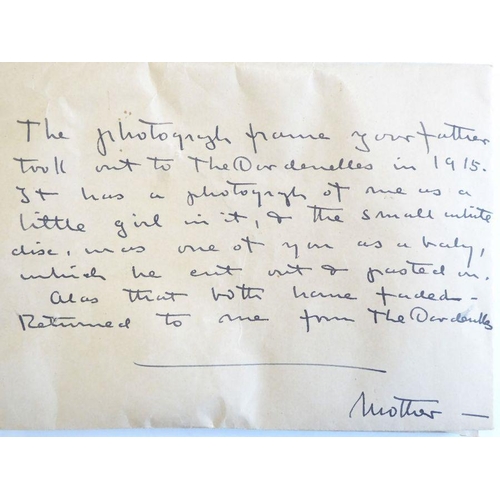 The photograph frame your father
took out to The Dardenelles in 1915.
It has a photograph of me as a
little girl in it, & the small white
disc, was one of you as a baby,
which he cut out & pasted in.
Alas that both have faded -
Returned to me from The Dardenelles
Mother -